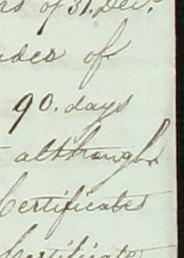 of 31. Dec.
of
90. days
although
Certificates
Certificate